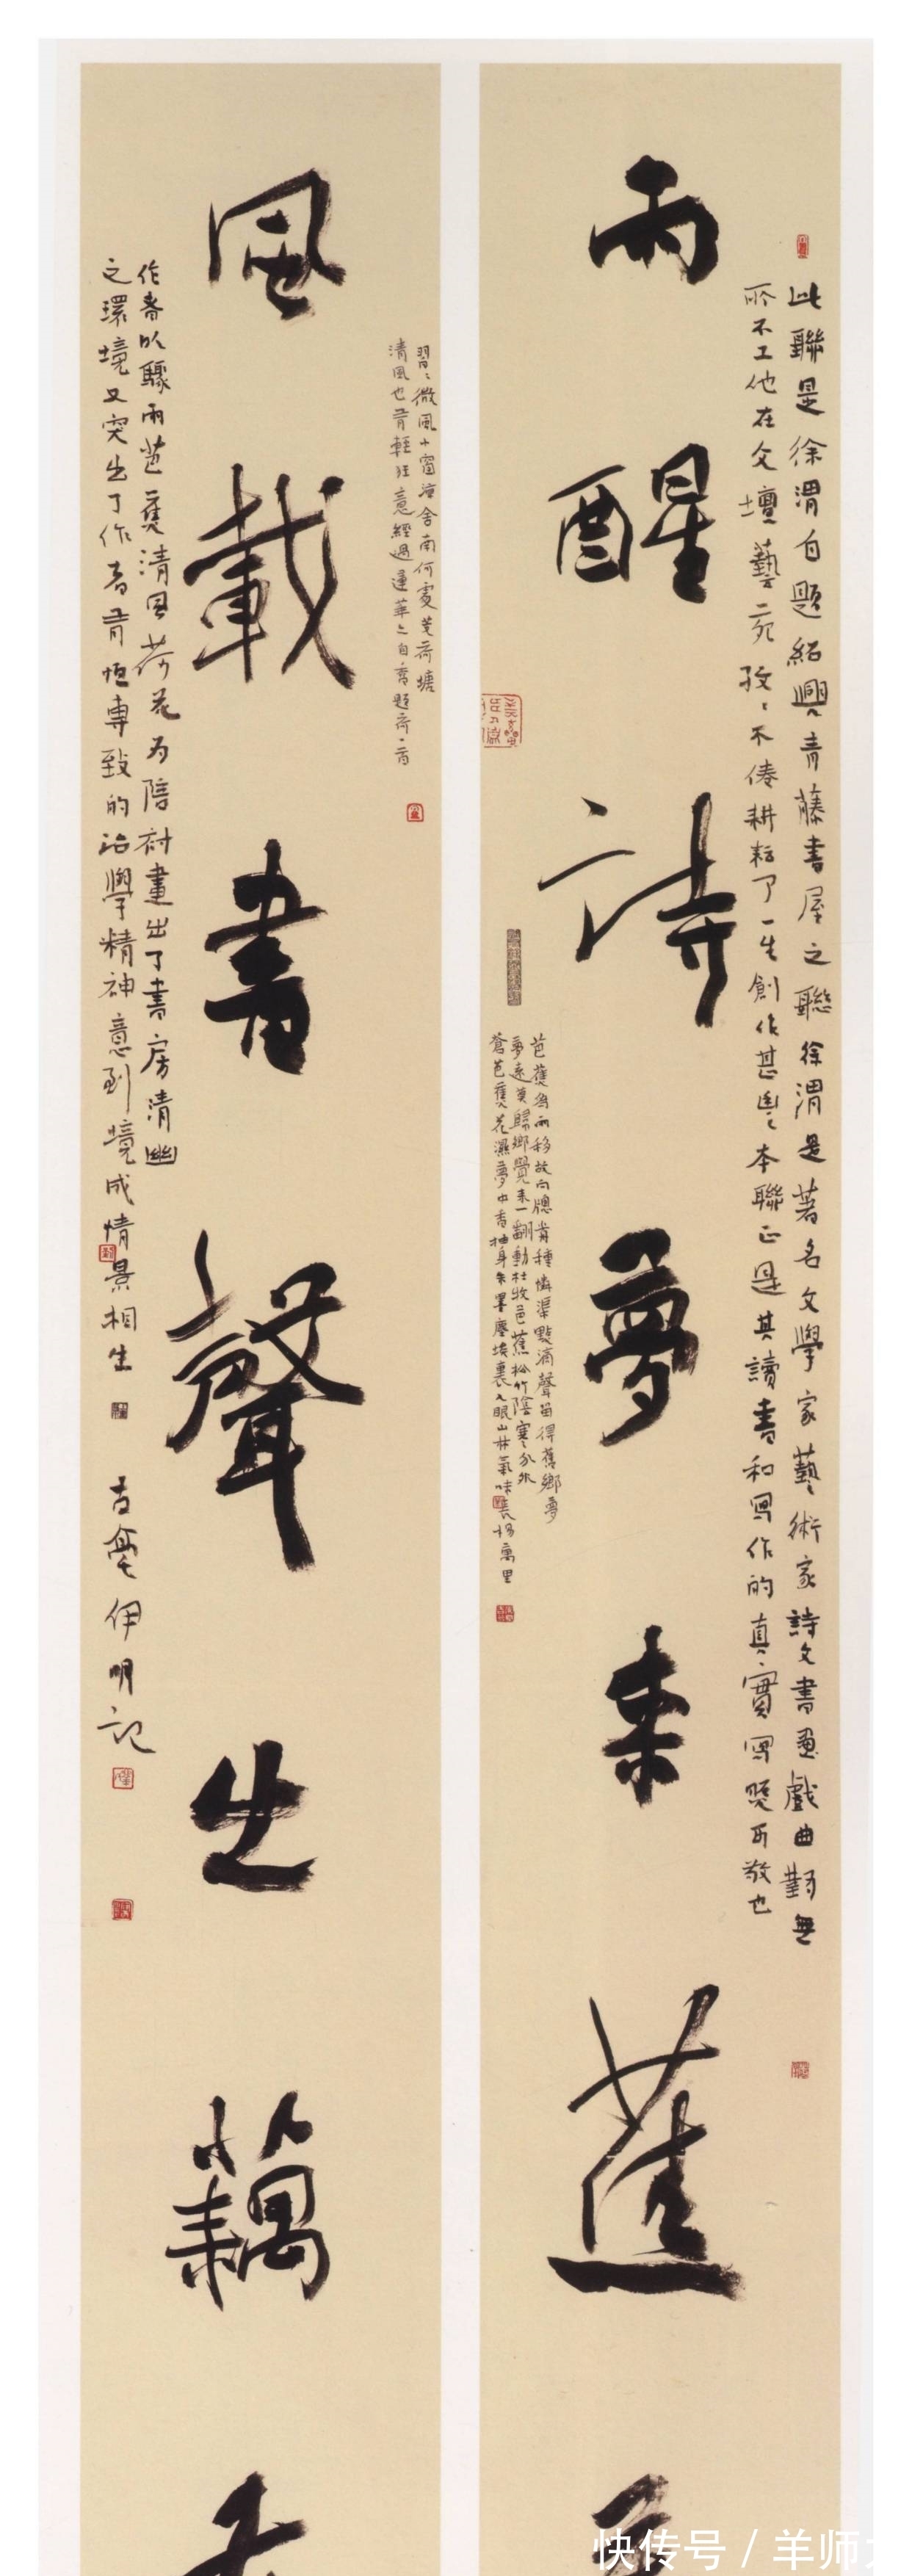 此聯是徐渭自題紹興青藤書屋之聯徐渭是著名文學家藝術家詩文書畫戲曲對無
所不工他在文壇藝苑孜孜不倦耕耘了一生創作甚豐本聯正是其讀書和寫作的真實寫照可敬也
雨醒詩夢來蕉
芭蕉為雨移故向牕前種憐渠點滴聲留得舊鄉夢
夢遠莫歸鄉覺來一翻動杜牧芭蕉松竹陰寒分外
蒼芭蕉花濕夢中香抽身朱墨塵埃裏入眼山林氣味長楊萬里
習習微風小窗涼舍南何處芰荷塘
清風也有輕狂意經過蓮華花自香題齋一首
風載書聲出藕
作者以驟雨芭蕉清風荷花為陪襯畫出了書房清幽
之環境又突出了作者有恒專致的治學精神意到境成情景相生
古亳伊明記
快传号 / 羊师